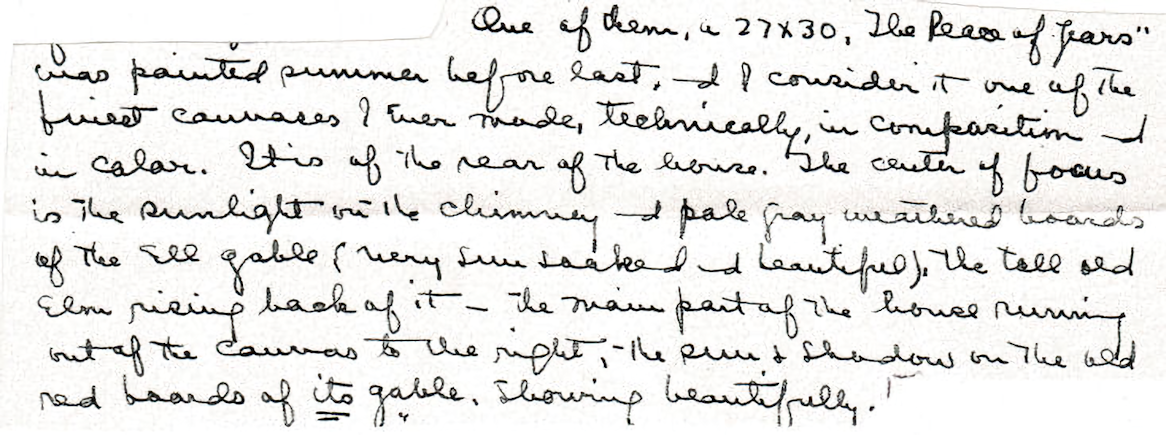 One of them, a 27x30, The Peace of Years"
was painted summer before last, & I consider it one of the
finest canvases I Ever made, technically, in composition &
in color. It is of the rear of the house. The center of focus
is the sunlight on the chimney & pale gray weathered boards
of the Ell gable (very sun soaked & beautiful), the tall old
Elm rising back of it – the main part of the house running
out of the canvas to the right, – the sun & shadow on the old
red boards of its gable, showing beautifully.